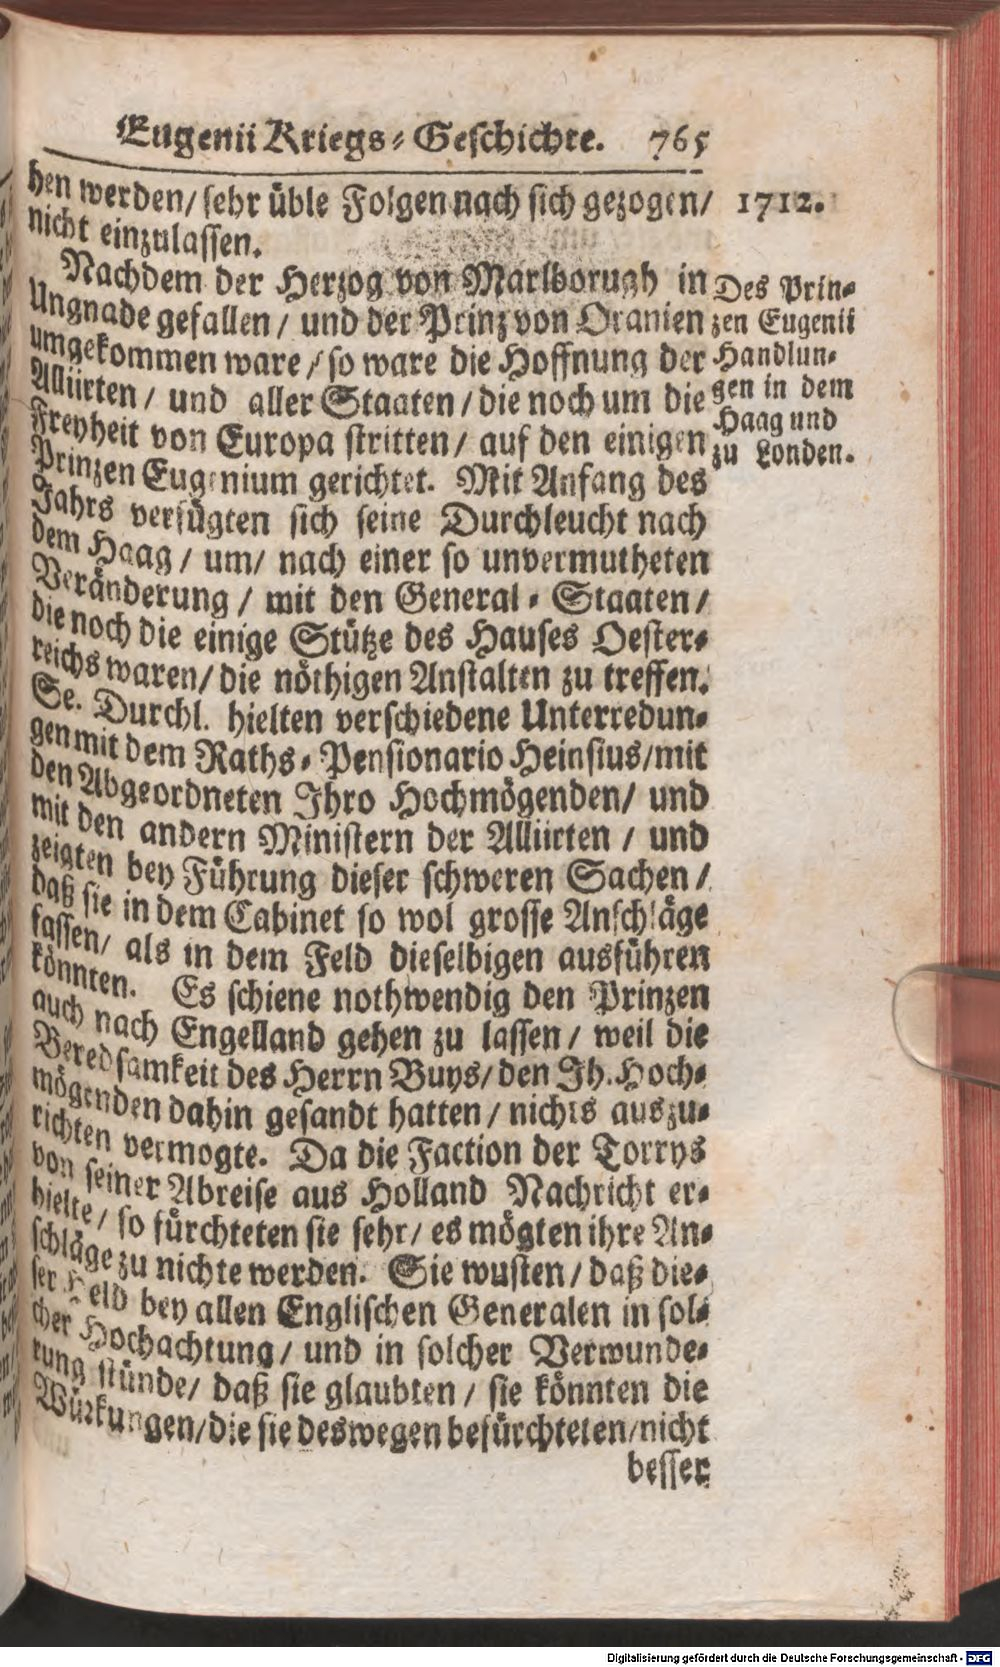 Eugenii Kriegs-Geschichte. 765
hen werden/ sehr üble Folgen nach sich gezogen/
nicht einzulassen.
1712.
Nachdem der Herzog von Marlborugh in
Ungnade gefallen/ und der Prinz von Oranien
umgekommen ware/ so ware die Hoffnung der
Alliirten/ und aller Staaten/ die noch um die
Freyheit von Europa stritten/ auf den einigen
Prinzen Eugenium gerichtet. Mit Anfang des
Jahrs verfügten sich seine Durchleucht nach
dem Haag/ um/ nach einer so unvermutheten
Veränderung/ mit den General-Staaten/
die noch die einige Stütze des Hauses Oester-
reichs waren/ die nöthigen Anstalten zu treffen.
Se. Durchl. hielten verschiedene Unterredun-
gen mit dem Raths-Pensionario Heinsius/ mit
den Abgeordneten Ihro Hochmögenden/ und
mit den andern Ministern der Alliirten/ und
zeigten bey Führung dieser schweren Sachen/
daß sie in dem Cabinet so wol grosse Anschläge
fassen/ als in dem Feld dieselbigen ausführen
könnten. Es schiene nothwendig den Prinzen
auch nach Engelland gehen zu lassen/ weil die
Beredsamkeit des Herrn Buys/ den Ih. Hoch-
mögenden dahin gesandt hatten/ nichts auszu-
richten vermogte. Da die Faction der Torrys
von seiner Abreise aus Holland Nachricht er-
hielte/ so fürchteten sie sehr/ es mögten ihre An-
schläge zu nichte werden. Sie wusten/ daß die-
ser Held bey allen Englischen Generalen in sol-
cher Hochachtung/ und in solcher Verwunde-
rung stünde/ daß sie glaubten/ sie könnten die
Würkungen/ die sie deswegen befürchteten/ nicht
besser
Des Prin-
zen Eugenii
Handlun-
gen in dem
Haag und
zu Londen.
Digitalisierung gefördert durch die Deutsche Forschungsgemeinschaft - DFG